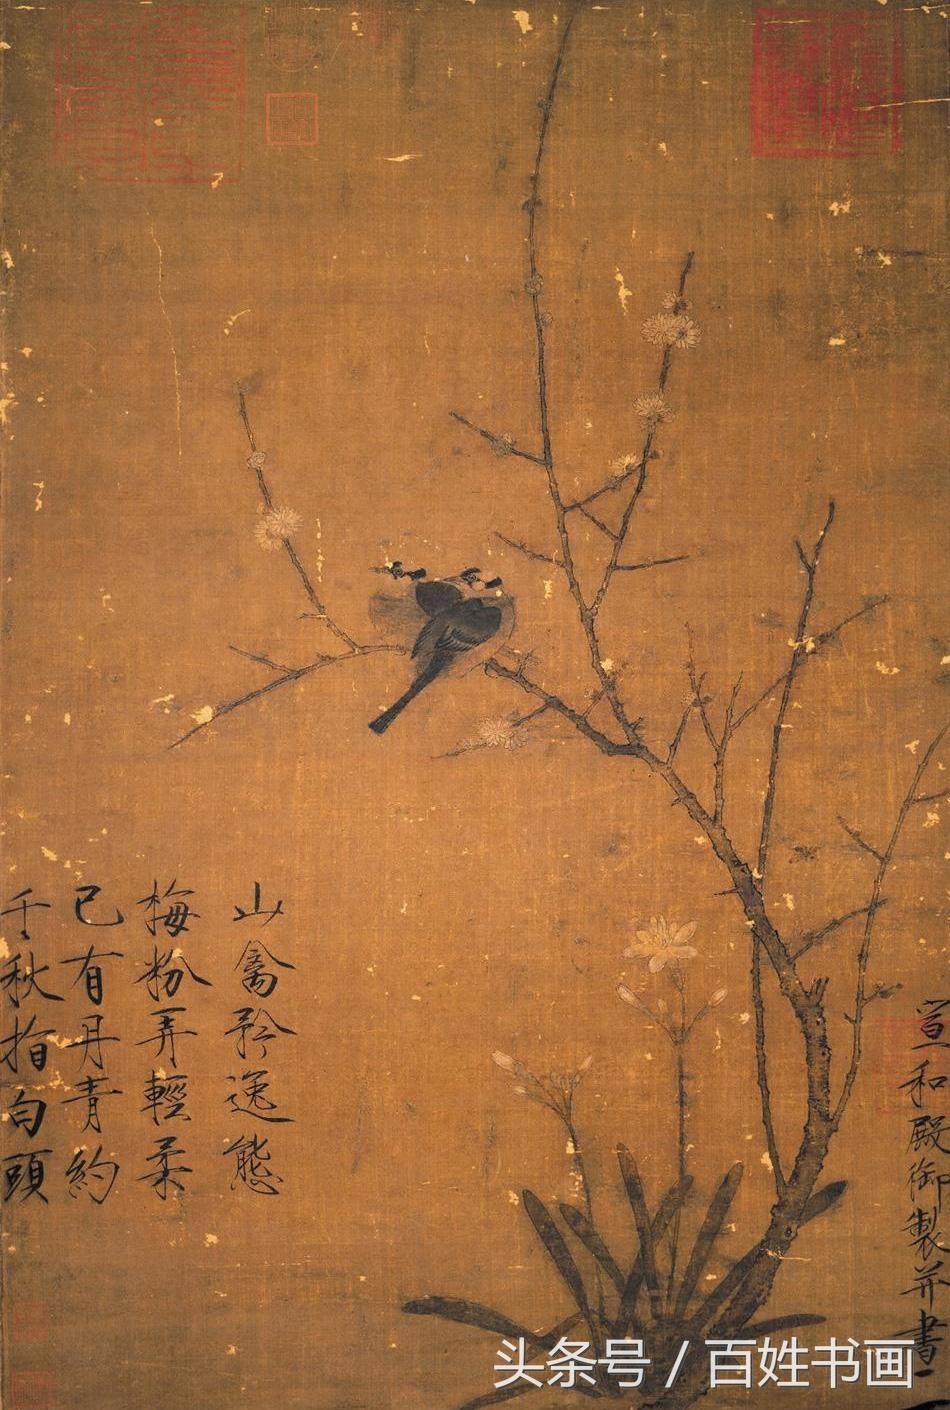 宣和殿御製并書
山禽矜逸態
梅粉弄輕柔
已有丹青約
千秋指白頭
头条号 / 百姓书画